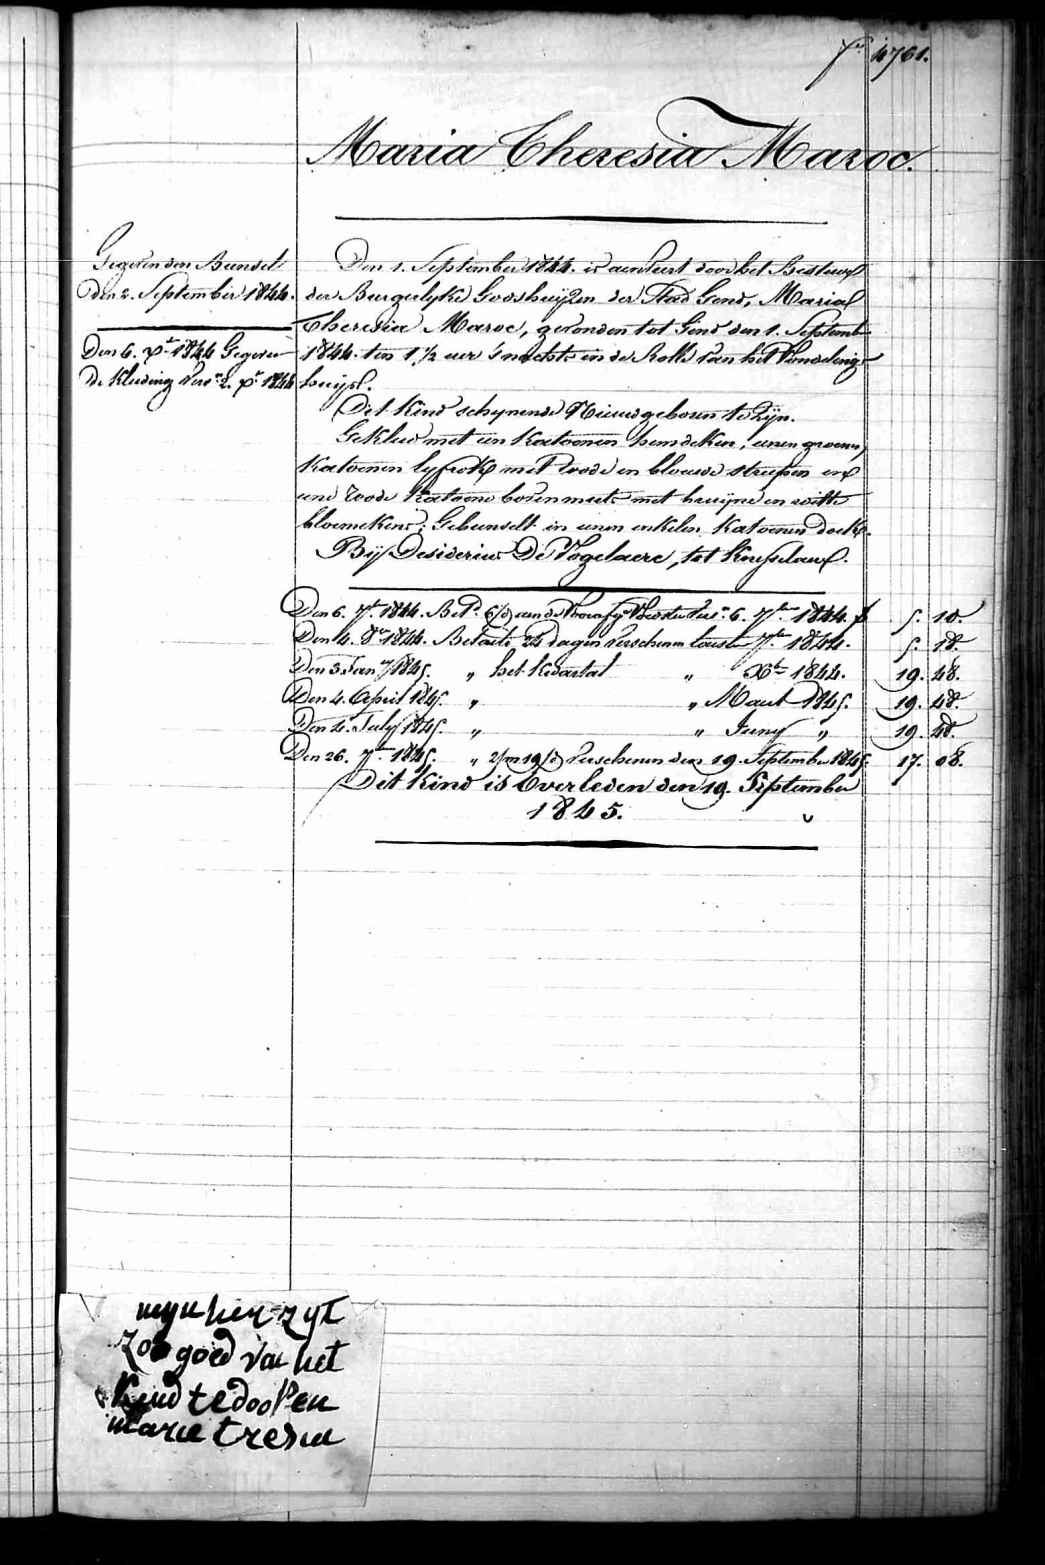 fo 4761.
Maria Theresia Maroc.
Gegeven den Bundel
den 2. September 1844.
Den 6. Xr 1844 Gegeven
De Kleeding Vers. 2. Xr 1844
Den 1. September 1844. is aenveert door het Bestuer
der Burgerlyke Godshuijzen der Stad Gend, Maria
Theresia Maroc, gevonden tot Gend den 1. Septemb.
1844. ten 1 ½ uer 's nachts in de Rolle van het Vondeling-
huijs.
Dit Kind schynende Nieuwgeboren te Zyn.
Gekleed met een Katoenen hemdeken, eenen groenen
Katoenen lyfrok met roode en blauwe streepen en
eene roode Katoene bovenmuts met bruijne en witte
bloemekens; Gebunselt in eenen enkelen Katoenen doek.
Bij Desiderius De Vogelaere, tot Knesselaere.
Den 6. 7br 1844. Bet. 6/d aen de Voorafg. Voedster Vers. 6. 7br 1844. f 5. 10.
Den 4. 8r 1844. Betaelt 24 dagen verschenen lesten 7br 1844. 5. 18.
Den 3 Jany 1845. " het Kwartal " Xbr 1844. 19. 48.
Den 4. April 1845. " " Maert 1845. 19. 48.
Den 4. July 1845. " " Juny " 19. 48.
Den 26. 7br 1845. " 2/m 19/d Verschenen den 19. September 1845. 17. 08.
Dit Kind is Overleden den 19. September
1845.
myn her zyt
zoo goed van het
Kind te doopen
marie tresia